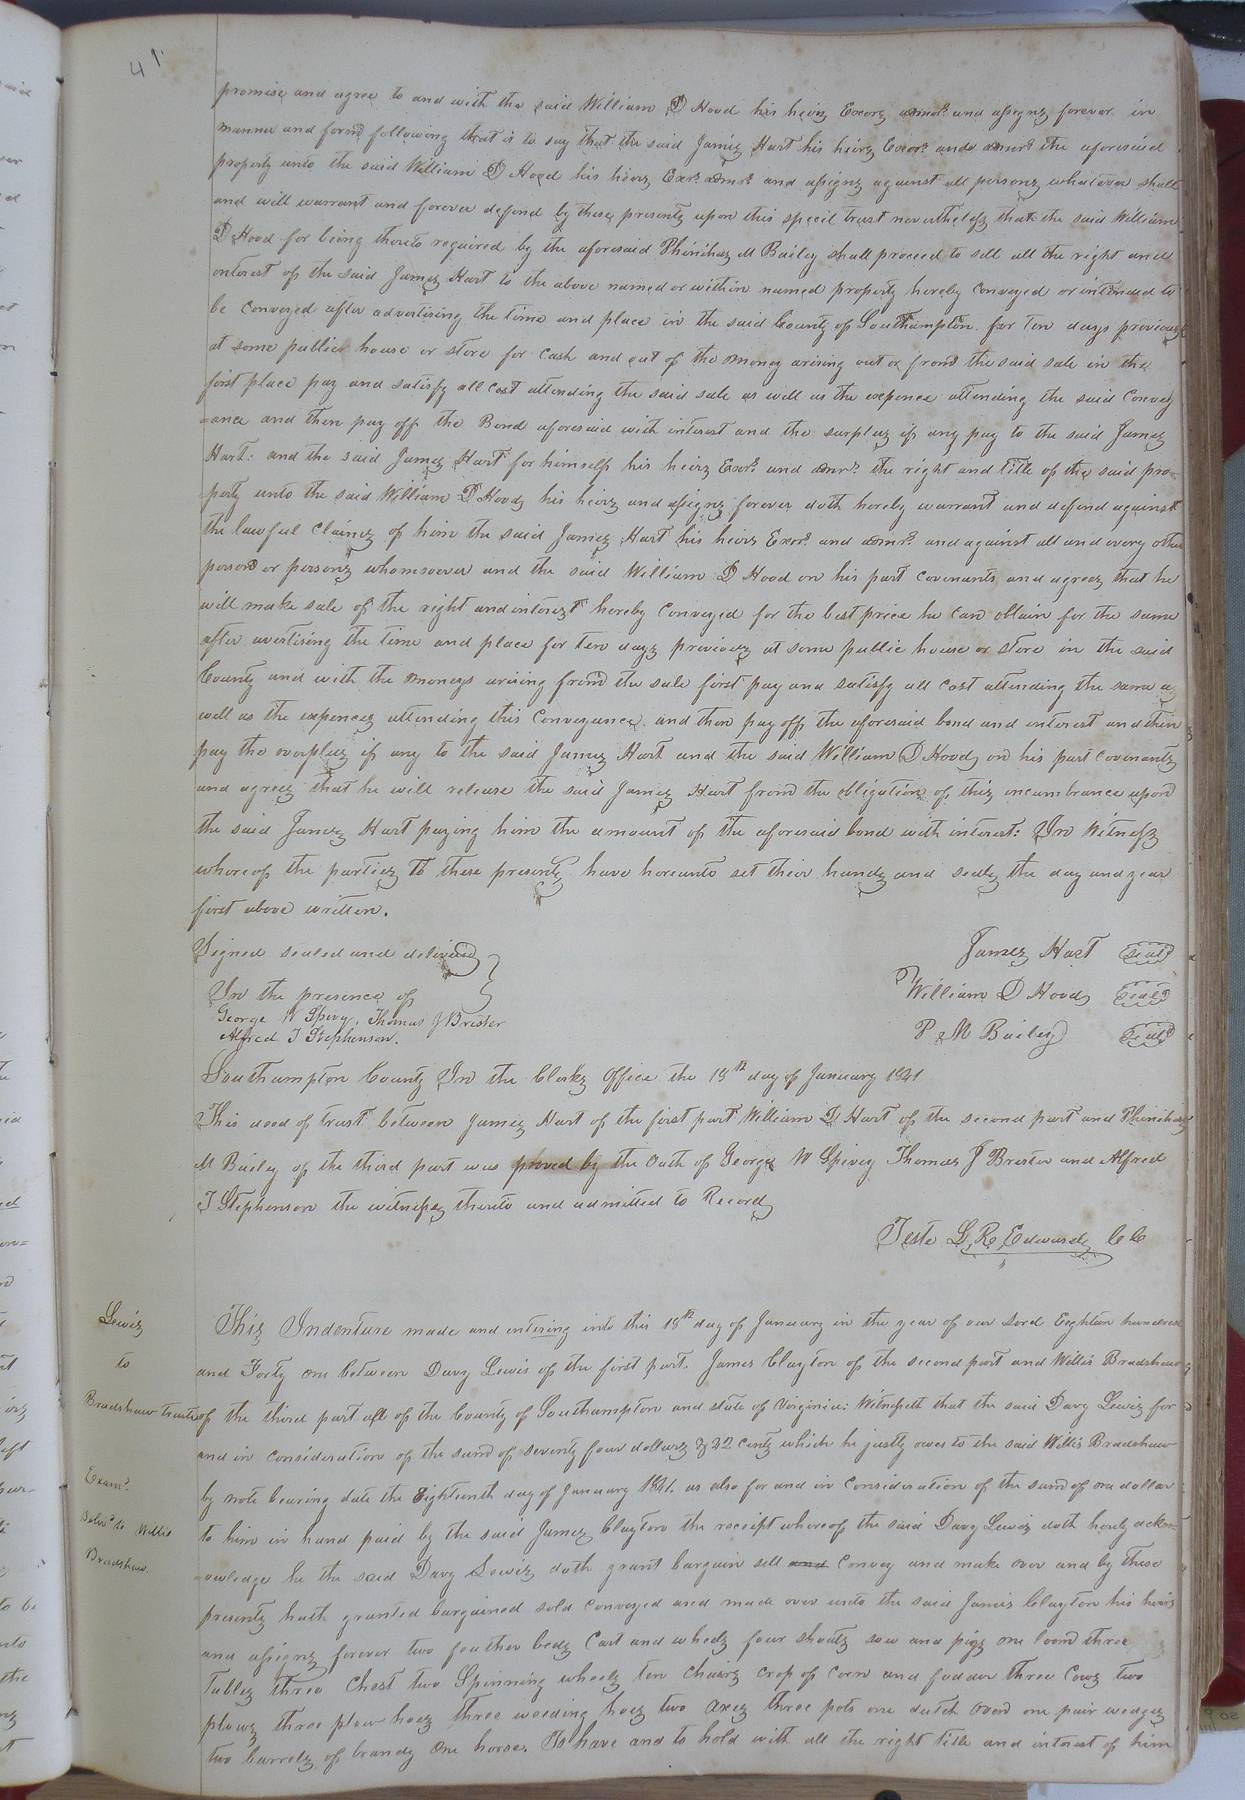 41
promise and agree to and with the said William D Hood his heirs Exors admrs and assigns forever in
manner and form following that is to say that the said James Hart his heirs Exors and admrs the aforesaid
property unto the said William D Hood his heirs Exrs admrs and assigns against all persons whatever shall
and will warrant and forever defend by these presents upon this specil trust nevertheless that the said William
D Hood for being thereto required by the aforesaid Phinihas M Bailey shall proceed to sell all the right and
interest of the said James Hart to the above named or within named property hereby conveyed or intended to
be conveyed after advertising the time and place in the said County of Southampton for Ten days previous
at some public house or store for cash and out of the money arising out or from the said sale in the
first place pay and satisfy all cost attending the said sale as well as the expence attending the said Convey
-ance and then pay off the Bond aforesaid with interest and the surplus if any pay to the said James
Hart: and the said James Hart for himself his heirs Exors and admrs the right and title of the said pro-
perty unto the said William D Hood his heirs and assigns forever doth hereby warrant and defend against
the lawful claims of him the said James Hart his heirs Exors and admrs and against all and every other
person or persons whomsoever and the said William D Hood on his part covenants and agrees that he
will make sale of the right and interest hereby conveyed for the best price he can obtain for the same
after avertising the time and place for ten days previous at some public house or store in the said
County and with the moneys arising from the sale first pay and satisfy all cost attending the same as
well as the expences attending this conveyance and then pay off the aforesaid bond and interest and then
pay the overplus if any to the said James Hart and the said William D Hood on his part covenants
and agrees that he will release the said James Hart from the obligation of this incumbrance upon
the said James Hart paying him the amount of the aforesaid bond with interest: In Witness
whereof the parties to these presents have hereunto set their hands and seals the day and year
first above written.
Signed sealed and delivered
In the presence of
George W Spivy, Thomas J Brister
Alfred T Stephenson.
James Hart seal
William D Hood seal
P M Bailey seal
Southampton County In the Clerks Office the 18th day of January 1841
This deed of trust between James Hart of the first part William D Hart of the second part and Phinihas
M Bailey of the third part was proved by the Oath of George W Spivey Thomas J Brister and Alfred
T Stephenson the witnesses thereto and admitted to Record
Teste L. R. Edwards CC
Lewis
to
Bradshaw trustee
Examd
Delivd to Willis
Bradshaw.
This Indenture made and entering into this 18th day of January in the year of our Lord Eighteen hundred
and Forty one between Davy Lewis of the first part. James Clayton of the second part and Willis Bradshaw
of the third part all of the County of Southampton and state of Virginia: Witnesseth that the said Davy Lewis for
and in consideration of the sum of seventy four dollars & 22 cents which he justly owes to the said Willis Bradshaw
by note bearing date the Eighteenth day of January 1841. as also for and in consideration of the sum of one dollar
to him in hand paid by the said James Clayton the receipt whereof the said Davy Lewis doth hereby ackn-
owledge he the said Davy Lewis doth grant bargain sell and convey and make over and by these
presents hath granted bargained sold conveyed and made over unto the said James Clayton his heirs
and assigns forever two feather beds Cart and wheels four shoats sow and pigs one loom three
Tables three Chest two Spinning wheels ten chairs crop of corn and fodder three Cows two
plows three plow hoes three weeding hoes two axes three pots one dutch oven one pair wedges
two barrels of brandy One horse. To have and to hold with all the right title and interest of him